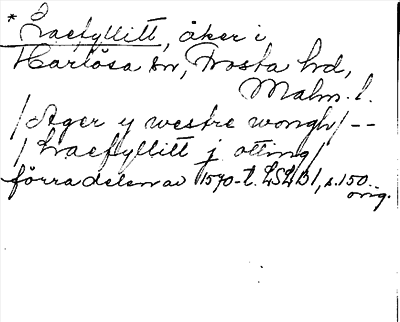 * Traefyllitt, åker i
Harlösa sn, Frosta hd,
Malm. l.
/Ager y westre wongh/ --
/traefyllitt j otting/
förra delen av 1570-t. LSLB1, s. 150.
orig.